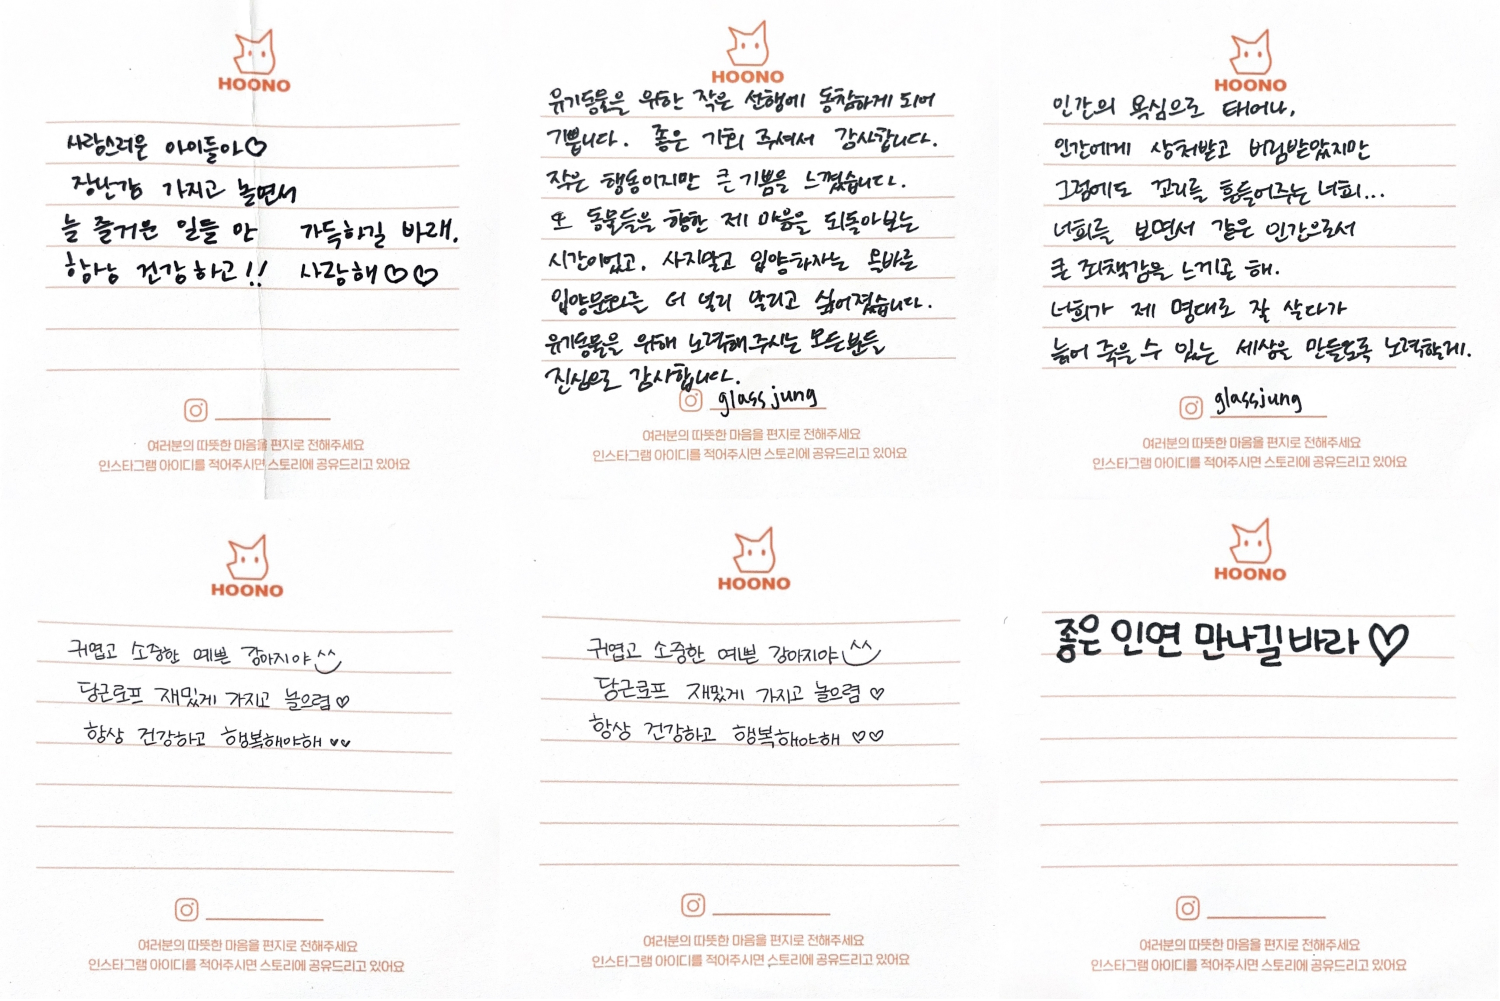 HOONO
사랑스러운 아이들아♡
장난감 가지고 놀면서
늘 즐거운 일들 만 가득하길 바래.
항상 건강하고!! 사랑해♡♡
여러분의 따뜻한 마음을 편지로 전해주세요
인스타그램 아이디를 적어주시면 스토리에 공유드리고 있어요
HOONO
유기동물을 위한 작은 선행에 동참하게 되어
기쁩니다. 좋은 기회 주셔서 감사합니다.
작은 행동이지만 큰 기쁨을 느꼈습니다.
또 동물들을 향한 제 마음을 되돌아보는
시간이었고, 사지말고 입양하자는 올바른
입양문화를 더 널리 알리고 싶어졌습니다.
유기동물을 위해 노력해주시는 모든분들
진심으로 감사합니다.
glassjung
여러분의 따뜻한 마음을 편지로 전해주세요
인스타그램 아이디를 적어주시면 스토리에 공유드리고 있어요
HOONO
인간의 욕심으로 태어나,
인간에게 상처받고 버림받았지만
그럼에도 꼬리를 흔들어주는 너희...
너희를 보면서 같은 인간으로서
큰 죄책감을 느끼곤 해.
너희가 제 명대로 잘 살다가
늙어 죽을 수 있는 세상을 만들도록 노력할게.
glassjung
여러분의 따뜻한 마음을 편지로 전해주세요
인스타그램 아이디를 적어주시면 스토리에 공유드리고 있어요
HOONO
귀엽고 소중한 예쁜 강아지야^^
당근로프 재밌게 가지고 놀으렴♡
항상 건강하고 행복해야해♥♥
여러분의 따뜻한 마음을 편지로 전해주세요
인스타그램 아이디를 적어주시면 스토리에 공유드리고 있어요
HOONO
귀엽고 소중한 예쁜 강아지야^^
당근로프 재밌게 가지고 놀으렴♡
항상 건강하고 행복해야해♡♡
여러분의 따뜻한 마음을 편지로 전해주세요
인스타그램 아이디를 적어주시면 스토리에 공유드리고 있어요
HOONO
좋은 인연 만나길바라♡
여러분의 따뜻한 마음을 편지로 전해주세요
인스타그램 아이디를 적어주시면 스토리에 공유드리고 있어요